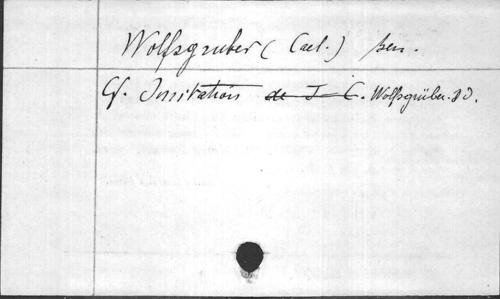 Wolfsgruber (Cael.) sen.
Cf. Imitation de J. C. Wolfsgruber.